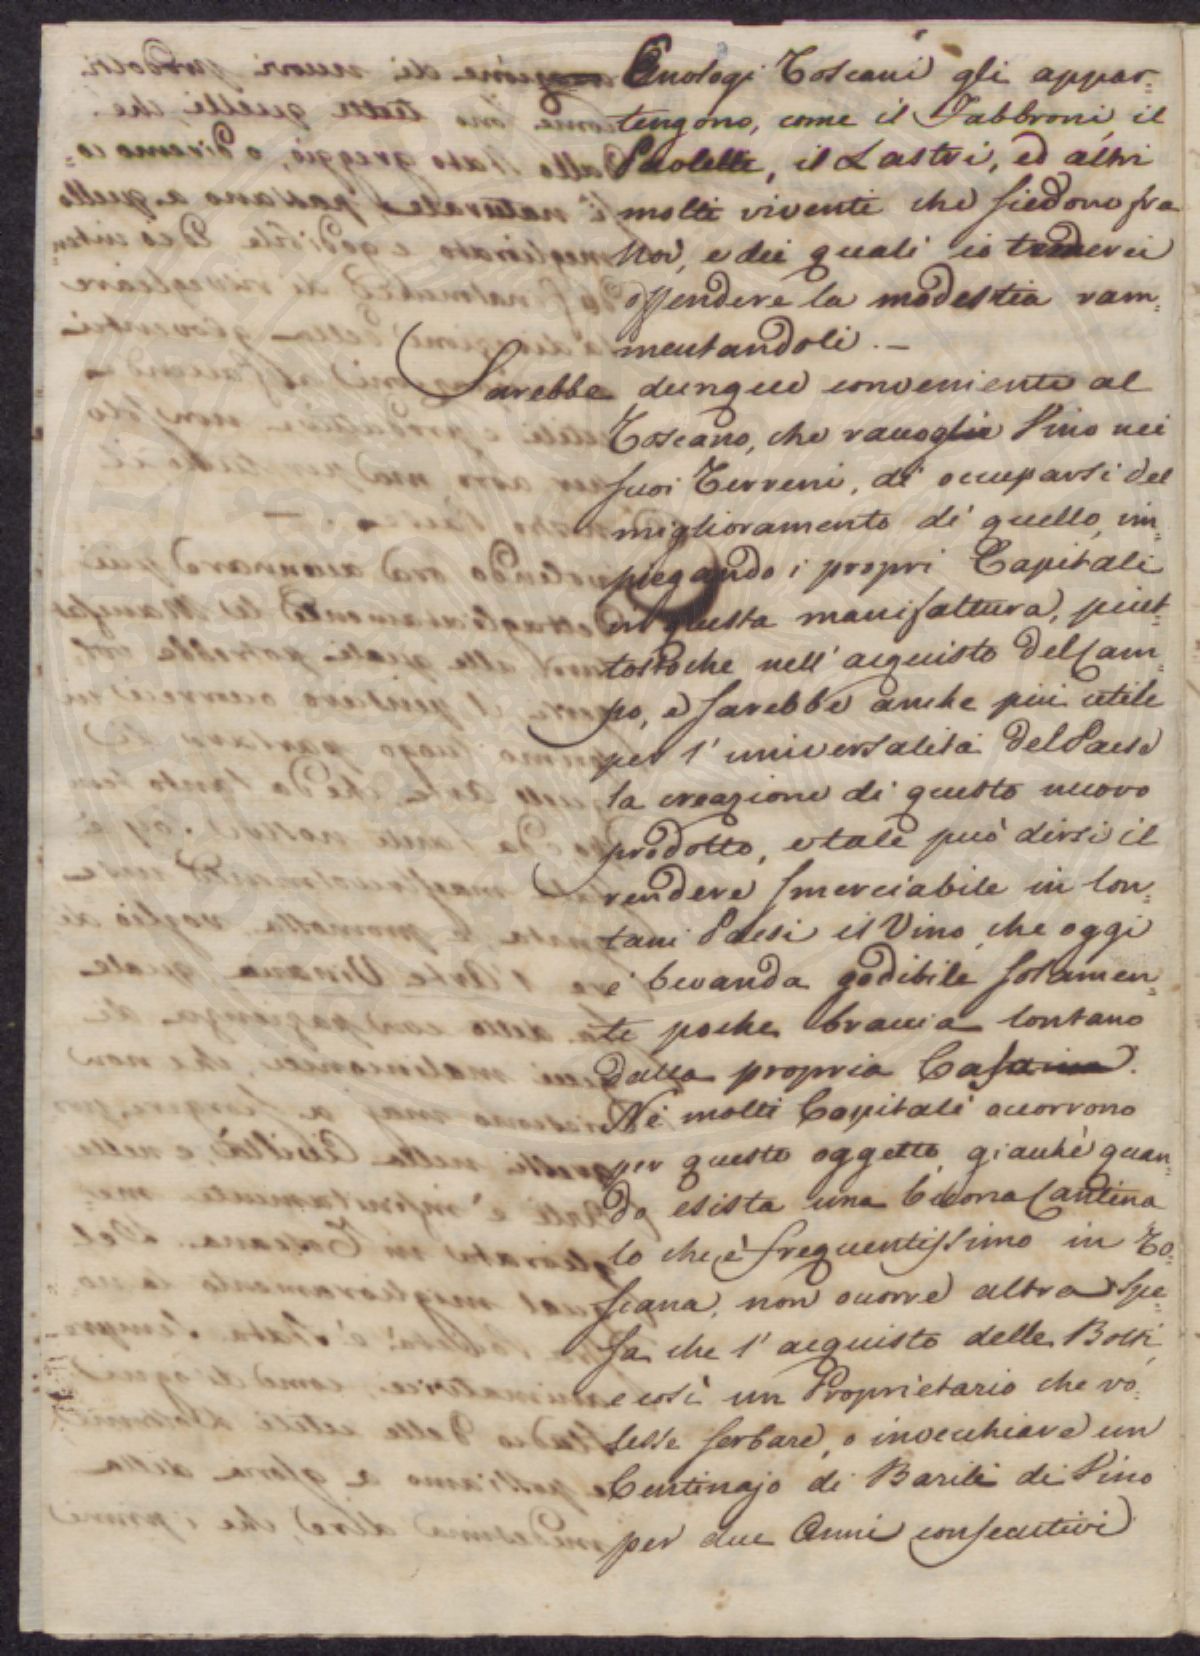 Enologi Toscani gli appar=
tengono, come il Fabbroni, il
Paoletti, il Lastri, ed altri
molti viventi che siedono fra
Noi, e dei quali io temerei
offendere la modestia ram=
mentandoli. —
Sarebbe dunque conveniente al
Toscano, che raccoglie Vino nei
suoi Terreni, di occuparsi del
miglioramento di quello, im=
piegando i propri Capitali
in questa manifattura, piut=
tosto che nell'acquisto del Cam=
po, e sarebbe anche più utile
per l'universalità del Paese
la creazione di questo nuovo
prodotto, e tale può dirsi il
rendere smerciabile in lon=
tani Paesi il Vino, che oggi
è bevanda godibile solamen=
te poche braccia lontano
dalla propria Casa.
Nè molti Capitali occorrono
per questo oggetto, giacchè quan=
do esista una buona Cantina
lo che è frequentissimo in To=
scana, non ocorre altra Spe=
sa che l'acquisto delle Botti,
e così un Proprietario che vo=
lesse serbare, o invecchiare un
Centinajo di Barili di Vino
per due Anni consecutivi